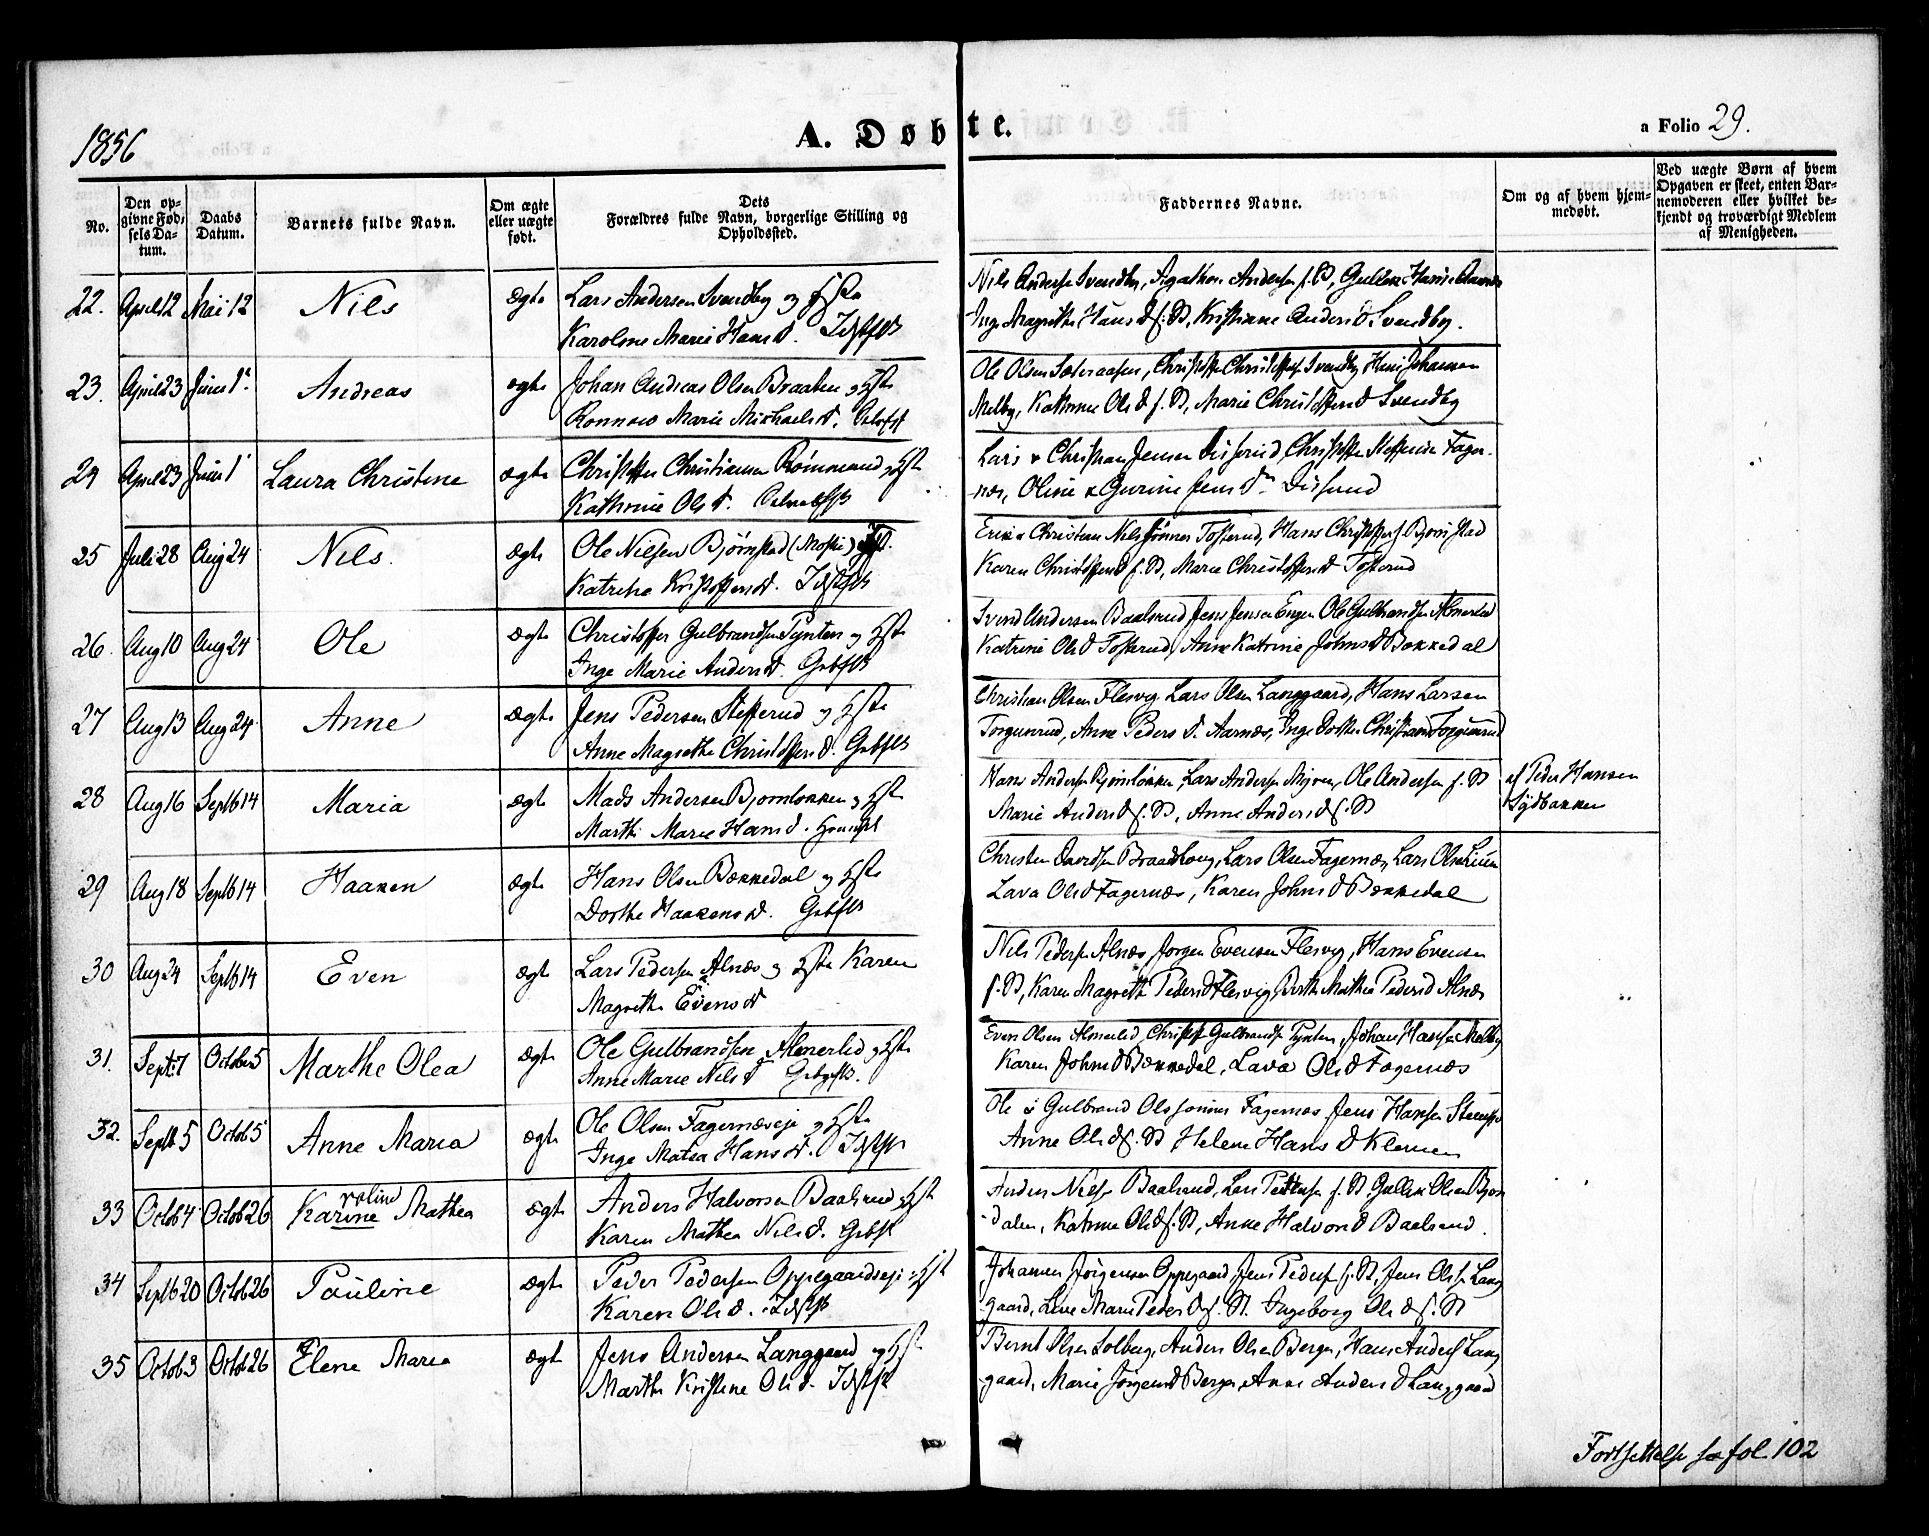 1856
A. Døbte.
a Folio 29.
No.
Den opgivne Fødselsdatum.
Daabs Datum.
Barnets fulde Navn.
Om ægte eller uægte født.
Dets Forældres fulde Navn, borgerlige Stilling og Opholdssted.
Faddernes Navne.
Om og af hvem hjemmedøbt.
Ved uægte Børn af hvem Opgaven er skeet, enten Barnemoderen eller hvilket bekjendt og troværdigt Medlem af Menigheden.
22. April 12 Mai 12 Nils ægte Lars Andersen Svendby og Hst
Karoline Marie Hans D.
Nils Anders Svendby, Agathon Anders f. St, Gullik Hans
Inge Magrethe Hans D f. St, Kristiane Anders D Svendby.
23. April 23 Juni 1 Andreas ægte Johan Andreas Olsen Braaten og Hst
Ronnow Marie Mikhaels D.
Ole Olsen Christoffer Christoffers Svendby Johansen
Melby, Kathrine Ols D f. St, Marie Christoffers D Svendby
24 April 23 Juni 1 Laura Christine ægte Christoffer Christiansen og Hst
Kathrine Ols D.
Lars & Christian Jensen Christoffer Steffensen Fager-
næs, Oline & Gurine Jens D
25 Juli 28 Aug 24 Nils. ægte Ole Nilsen Bjørnstad
Katrine Kristoffers D.
Erik & Christian Nilssønner Tosterud, Hans Christoffers Bjørnstad
Karen Christoffers D f. St, Marie Christoffers D Tosterud
26. Aug 10 Aug 24 Ole ægte Christoffer Gulbrandsen Pynten og Hst
Inge Marie Anders D. Grbfst
Svend Andersen Baalsrud Jens Jensen Engen Ole Gulbrandsen Almerlid
Katrine Ols D Tosterud, Anne Katrine Johns D Bækkedal
27 Aug 13 Aug 24 Anne ægte Jens Pedersen Stefferud og Hst
Anne Magrethe Christoffers D. Grbfst
Christian Olsen Flesvig Lars Olsen Langgaard, Hans Larsen
Torgunrud, Anne Peders D. Aarnæs, Inge Dorthe Christians Torgunrud
28 Aug 16 Septb 14 Maria ægte Mads Andersen Bjørnløkken og Hst
Marthe Marie Hans D.
Hans Anders Bjørnløkken, Lars Anders Ole Andersen f. St
Marie Anders D f. St, Anne Anders D f. St
af Peder Hansen
Sydbakken
29 Aug 18 Septb 14 Haaken ægte Hans Olsen Bækkedal og Hst
Dorthe Haakens D. Grbfst
Christen Davidsen Braadhoug, Lars Olsen Fagernæs, Lars Olsen Lien
Lava Ols D Fagernæs, Karen Johns D Bækkedal
30 Aug 24 Septb 14 Even ægte Lars Pedersen Alnæs og Hst Karen
Magrethe Evens D
Nils Peders Alnæs, Jørgen Evensen Flesvig, Hans Evensen
f. St, Karen Magrethe Peders D Flesvig, Berthe Mathea Peders D Alnæs
31. Sept 7 October 5 Marthe Olea ægte Ole Gulbrandsen Almerlid og Hst
Anne Marie Nils D Grbfst.
Even Olsen Almerlid, Christoffer Gulbrands Pynten, Johan Hansen Melby
Karen Johns D Bækkedal, Lava Ols D Fagernæs
32. Septb 5 Octob 5 Anne Maria ægte Ole Olsen Fagernæseje og Hst
Inge Matea Hans D.
Ole & Gulbrand Olssønner Fagernæs Jens Hansen
Anne Ols D f. St Helene Hans D Klemen
33 Octob 4 Octob 26 Karine roline Mathea ægte Anders Halvorsen Baalsrud og Hst
Karen Mathea Nils D. Grbfst
Anders Nils Baalsrud, Lars Petersen f. St. Gullik Olsen Bjørn-
dalen, Katrine Ols D f. St, Anne Halvors D Baalsrud.
34 Septb 20 Octob 26 Pauline ægte Peder Pedersen Oppegaardseje og Hst
Karen Ols D.
Johannes Jørgensen Oppegaard, Jens Peders f. St, Jens Ols Lang-
gaard, Marie Peders D f. St. Ingeborg Ols D f. St
35 Octob 3 Octob 26 Elene Maria ægte Jens Andersen Langgaard og Hst
Marthe Kristine Ols D.
Bernt Olsen Solberg, Anders Olsen Berger, Hans Anders Lang-
gaard, Marie Jørgens D Berger, Anne Anders D Langgaard
Fortsættelse se fol. 102